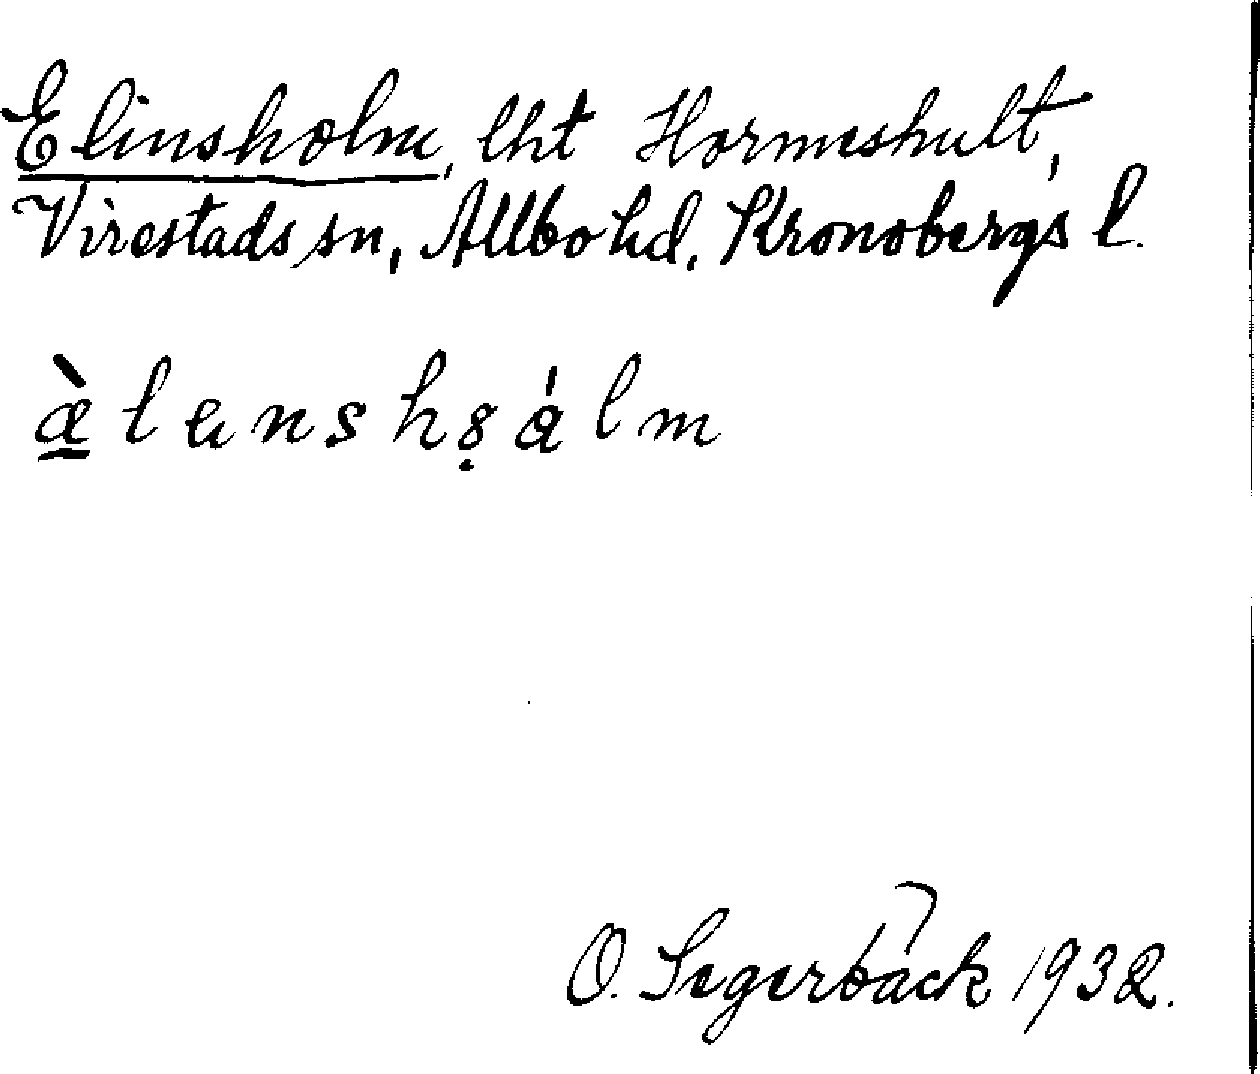 Elinsholm, lht Hormeshult,
Virestads sn, Allbo hd, Kronobergs l.
æ̀lenshọálm
O. Segerbäck 1932.